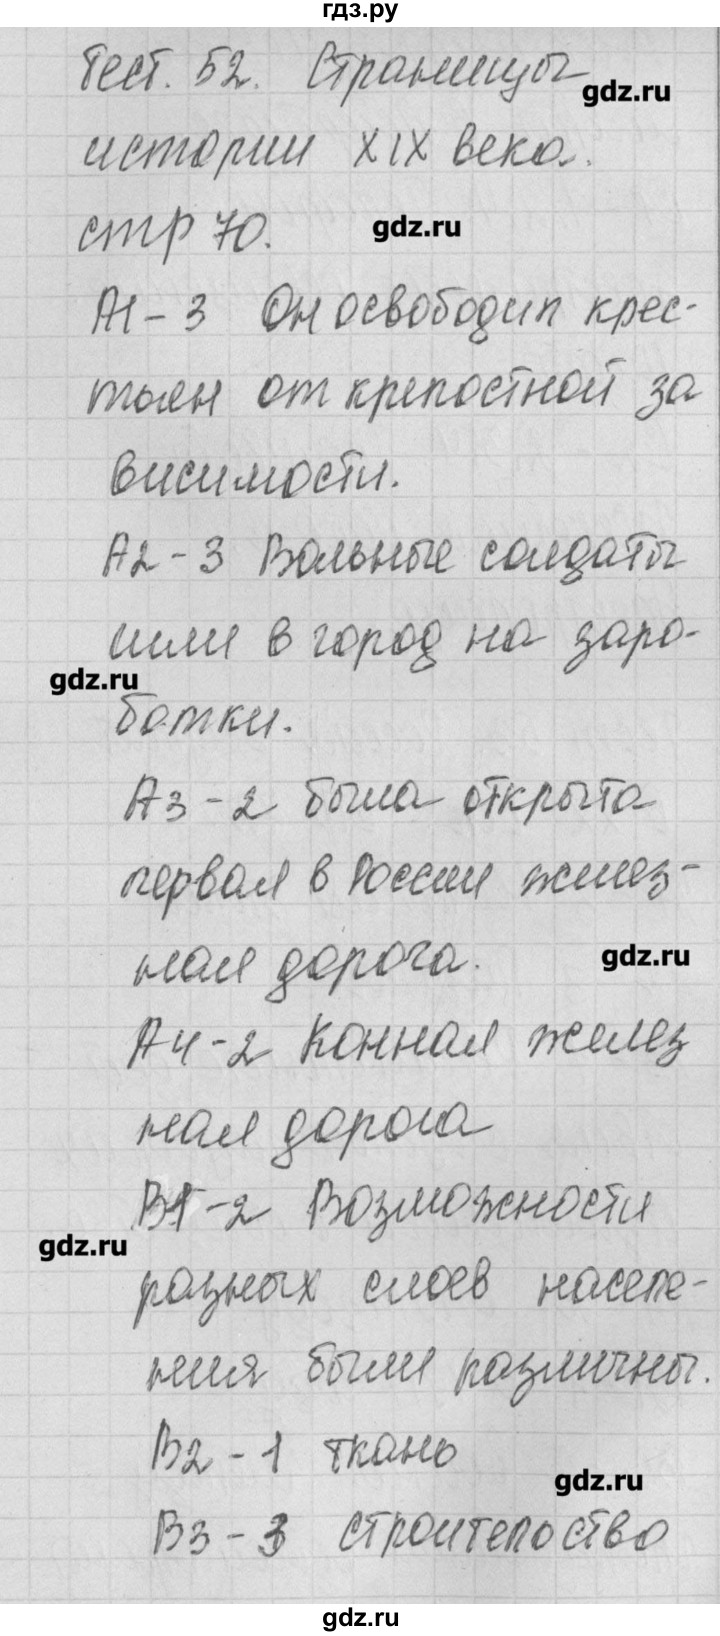 гдз.ру
Тест. 52. Страницы
gdz.ru
истории XIX века.
стр 70.
gdz.ru
А1-3 Он освободил крес-
тьян от крепостной за
висимости.
А2-3 Вольные солдаты
шли в город на заро-
gdz.ru
ботки.
А3-2 была открыта
первая в России желез-
ная дорога.
gdz.ru
А4-2 Конная желез
ная дорога
В1-2 Возможности
gdz.ru
разных слоев населе-
ния были различны.
В2-1 ткань
gdz.ru
В3-3 строительство
gdz.ru